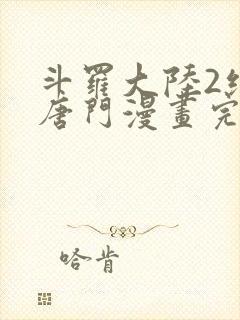 斗羅大陸2絕
唐門漫畫完
哈肯